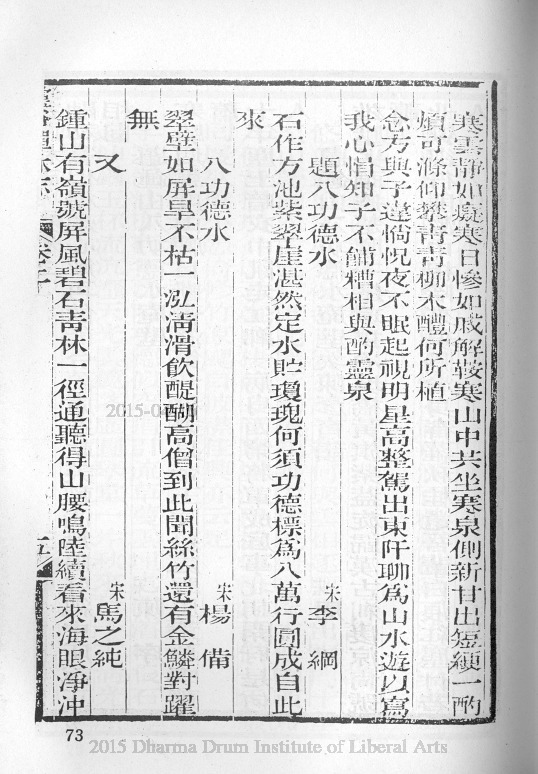 寒雲靜如癡寒日慘如戚解鞍寒山中共坐寒泉側新甘出短綆一酌
煩可滌仰攀靑靑柳木醴何所植
念方與子違惝怳夜不眠起視明星高整駕出東阡聊爲山水遊以寫
我心悁知子不餔糟相與酌靈泉
題八功德水 宋 李綱
石作方池紫翠崖湛然定水貯瓊瑰何須功德標爲八萬行圓成自此
來
八功德水 宋 楊備
翠壁如屏旱不枯一泓淸滑飲醍醐高僧到此聞絲竹還有金鱗對躍
無
又 宋 馬之純
鍾山有嶺號屏風碧石靑林一徑通聽得山腰鳴陸續看來海眼淨沖
五
73
2015 Dharma Drum Institute of Liberal Arts